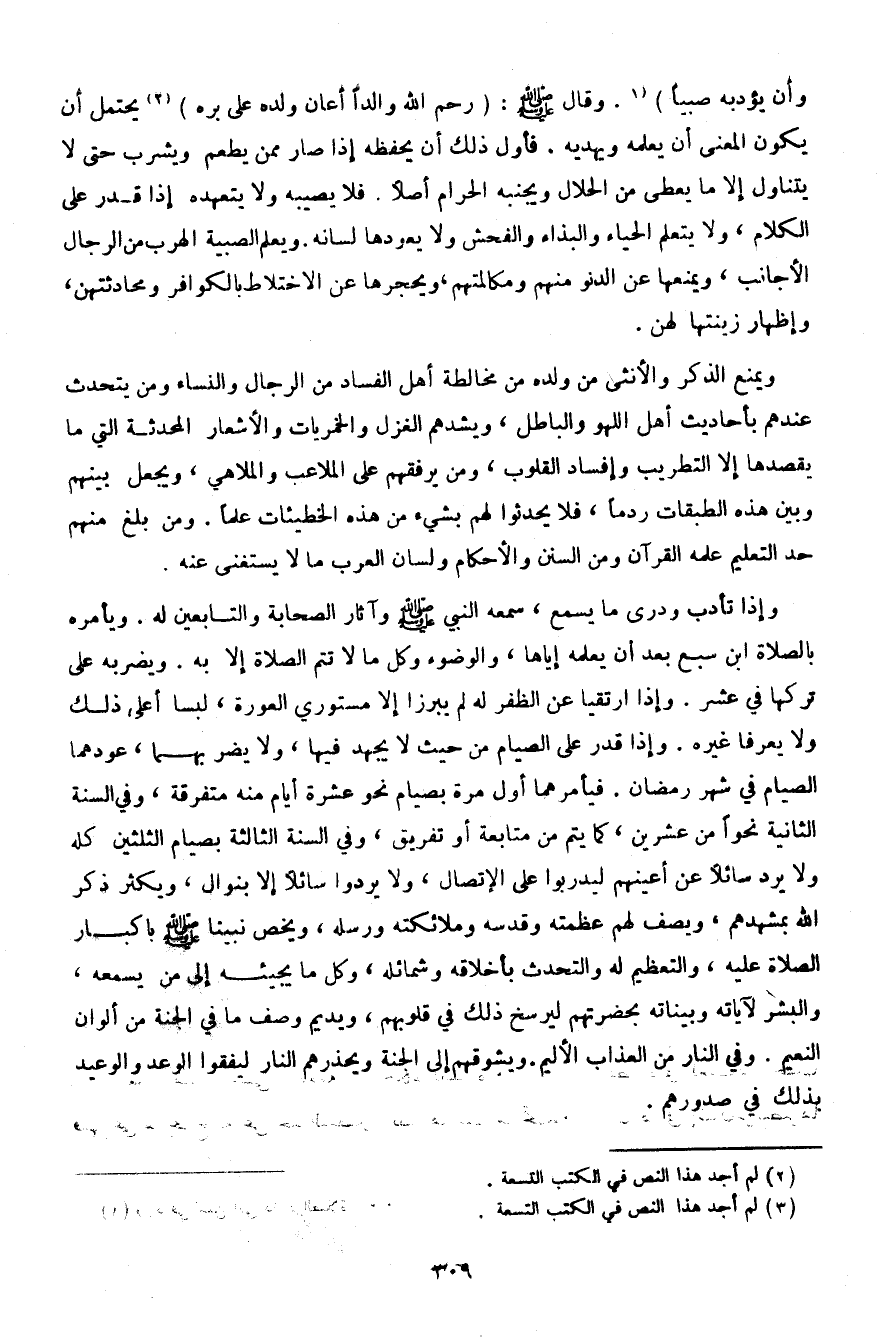 وأن يؤدبه صبياً ) (١ . وقال ﷺ : ( رحم الله والداً أعان ولده على بره ) (٢) يحتمل أن
يكون المعنى أن يعلمه ويهديه . فأول ذلك أن يحفظه إذا صار ممن يطعم ويشرب حتى لا
يتناول إلا ما يعطى من الحلال ويجنبه الحرام أصلاً . فلا يصيبه ولا يتعهده إذا قـدر على
الكلام ، ولا يتعلم الحياء والبذاء والفحش ولا يعودها لسانه . ويعلم الصبية الهرب من الرجال
الأجانب ، ويمنعها عن الدنو منهم ومكالمتهم ، ويحجرها عن الاختلاط بالكوافر ومحادثتهن ،
وإظهار زينتها لهن .
ويمنع الذكر والأنثى من ولده من مخالطة أهل الفساد من الرجال والنساء ومن يتحدث
عندهم بأحاديث أهل اللهو والباطل ، ويشدهم الغزل والخمريات والأشعار المحدثـة التي ما
يقصدها إلا التطريب وإفساد القلوب ، ومن يرفقهم على الملاعب والملاهي ، ويجعل بينهم
وبين هذه الطبقات ردماً ، فلا يحدثوا لهم بشيء من هذه الخطيئات علماً . ومن بلغ منهم
حد التعليم علمه القرآن ومن السنن والأحكام ولسان العرب ما لا يستغنى عنه .
وإذا تأدب ودرى ما يسمع ، سمعه النبي ﷺ وآثار الصحابة والتـابعين له . ويأمره
بالصلاة ابن سبع بعد أن يعلمه إياها ، والوضوء وكل ما لا تتم الصلاة إلا به . ويضربه على
تركها في عشر . وإذا ارتقيا عن الظفر له لم يبرزا إلا مستوري العورة ، لبسا أعلى ذلـك
ولا يعرفا غيره . وإذا قدر على الصيام من حيث لا يجهد فيها ، ولا يضر بهـما ، عودهما
الصيام في شهر رمضان . فيأمرهما أول مرة بصيام نحو عشرة أيام منه متفرقة ، وفي السنة
الثانية نحواً من عشرين ، كما يتم من متابعة أو تفريق ، وفي السنة الثالثة بصيام الثلثين كله
ولا يرد سائلاً عن أعينهم ليدربوا على الإتصال ، ولا يردوا سائلاً إلا بنوال ، ويكثر ذكر
الله بمشهدهم ، ويصف لهم عظمته وقدسه وملائكته ورسله ، ويخص نبينا ﷺ باكبـار
الصلاة عليه ، والتعظيم له والتحدث بأخلاقه وشمائله ، وكل ما يجيئـه إلى من يسمعه ،
والبشر لآياته وبيناته بحضرتهم ليرسخ ذلك في قلوبهم ، ويديم وصف ما في الجنة من ألوان
النعيم . وفي النار من العذاب الأليم . ويشوقهم إلى الجنة ويحذرهم النار ليفقوا الوعد والوعيد
بذلك في صدورهم .
(٢) لم أجد هذا النص في الكتب التسعة .
(٣) لم أجد هذا النص في الكتب التسعة .
٣٠٩